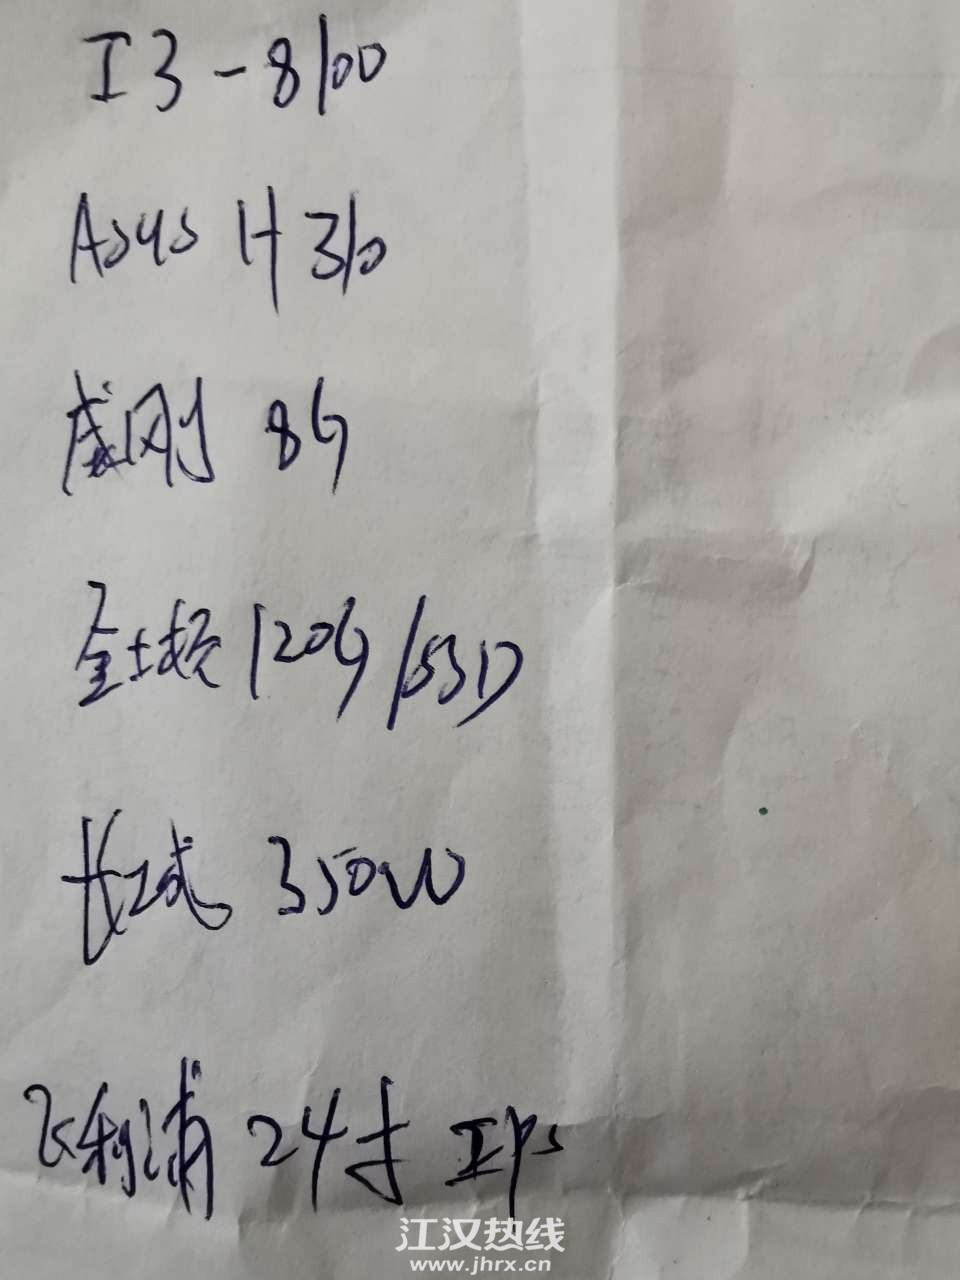 I3-8100
Asus H310
威刚 8G
金士顿 120G/SSD
长城 350W
飞利浦 24寸 IPS
江汉热线
www.jhrx.cn